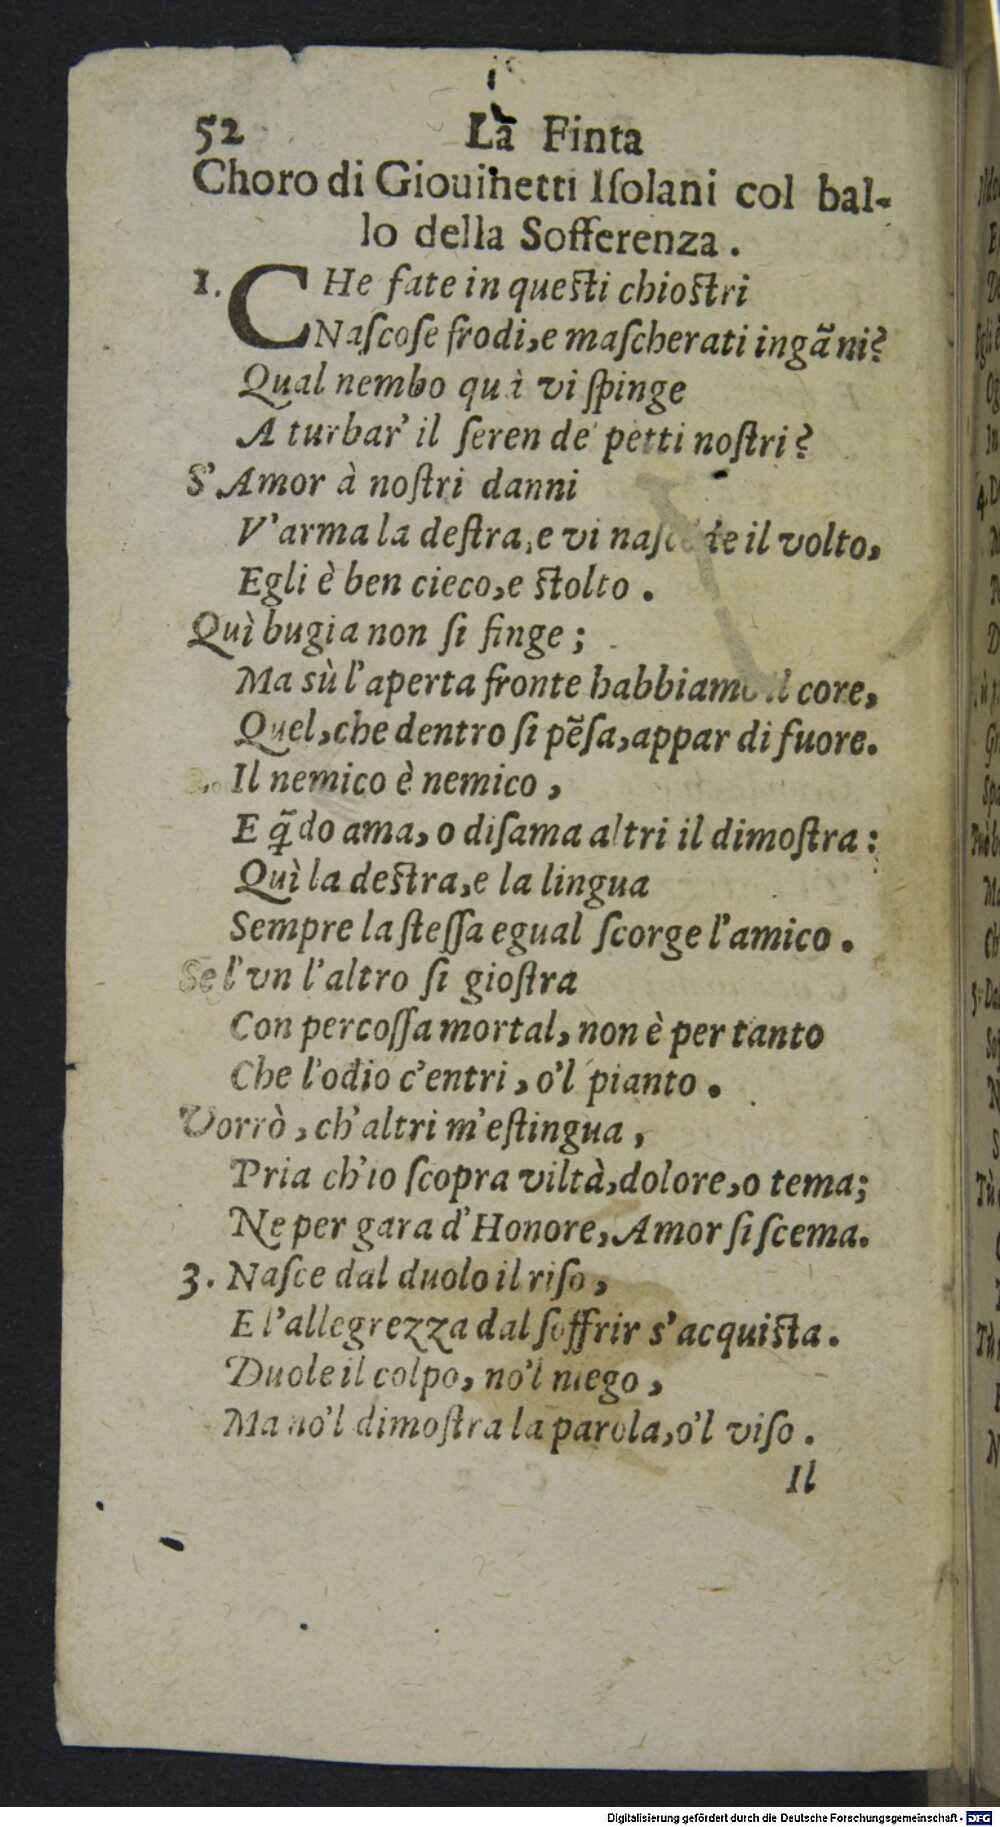 52 La Finta
Choro di Giouinetti Iſolani col bal-
lo della Sofferenza.
1. CHe fate in queſti chioſtri
Naſcoſe frodi, e maſcherati ingãni?
Qual nembo quì vi ſpinge
A turbar' il ſeren de' petti noſtri?
S'Amor à noſtri danni
V'arma la deſtra, e vi naſcõde il volto,
Egli è ben cieco, e ſtolto.
Quì bugia non ſi finge;
Ma sù l'aperta fronte habbiamo il core,
Quel, che dentro ſi pẽſa, appar di fuore.
2. Il nemico è nemico,
E q̃do ama, o diſama altri il dimoſtra:
Quì la deſtra, e la lingua
Sempre la ſteſſa egual ſcorge l'amico.
Se l'vn l'altro ſi gioſtra
Con percoſſa mortal, non è per tanto
Che l'odio c'entri, o'l pianto.
Vorrò, ch'altri m'eſtingua,
Pria ch'io ſcopra viltà, dolore, o tema;
Ne per gara d'Honore, Amor ſi ſcema.
3. Naſce dal duolo il riſo,
E l'allegrezza dal ſoffrir s'acquiſta.
Duole il colpo, no'l niego,
Ma no'l dimoſtra la parola, o'l viſo.
Il
Digitalisierung gefördert durch die Deutsche Forschungsgemeinschaft - DFG